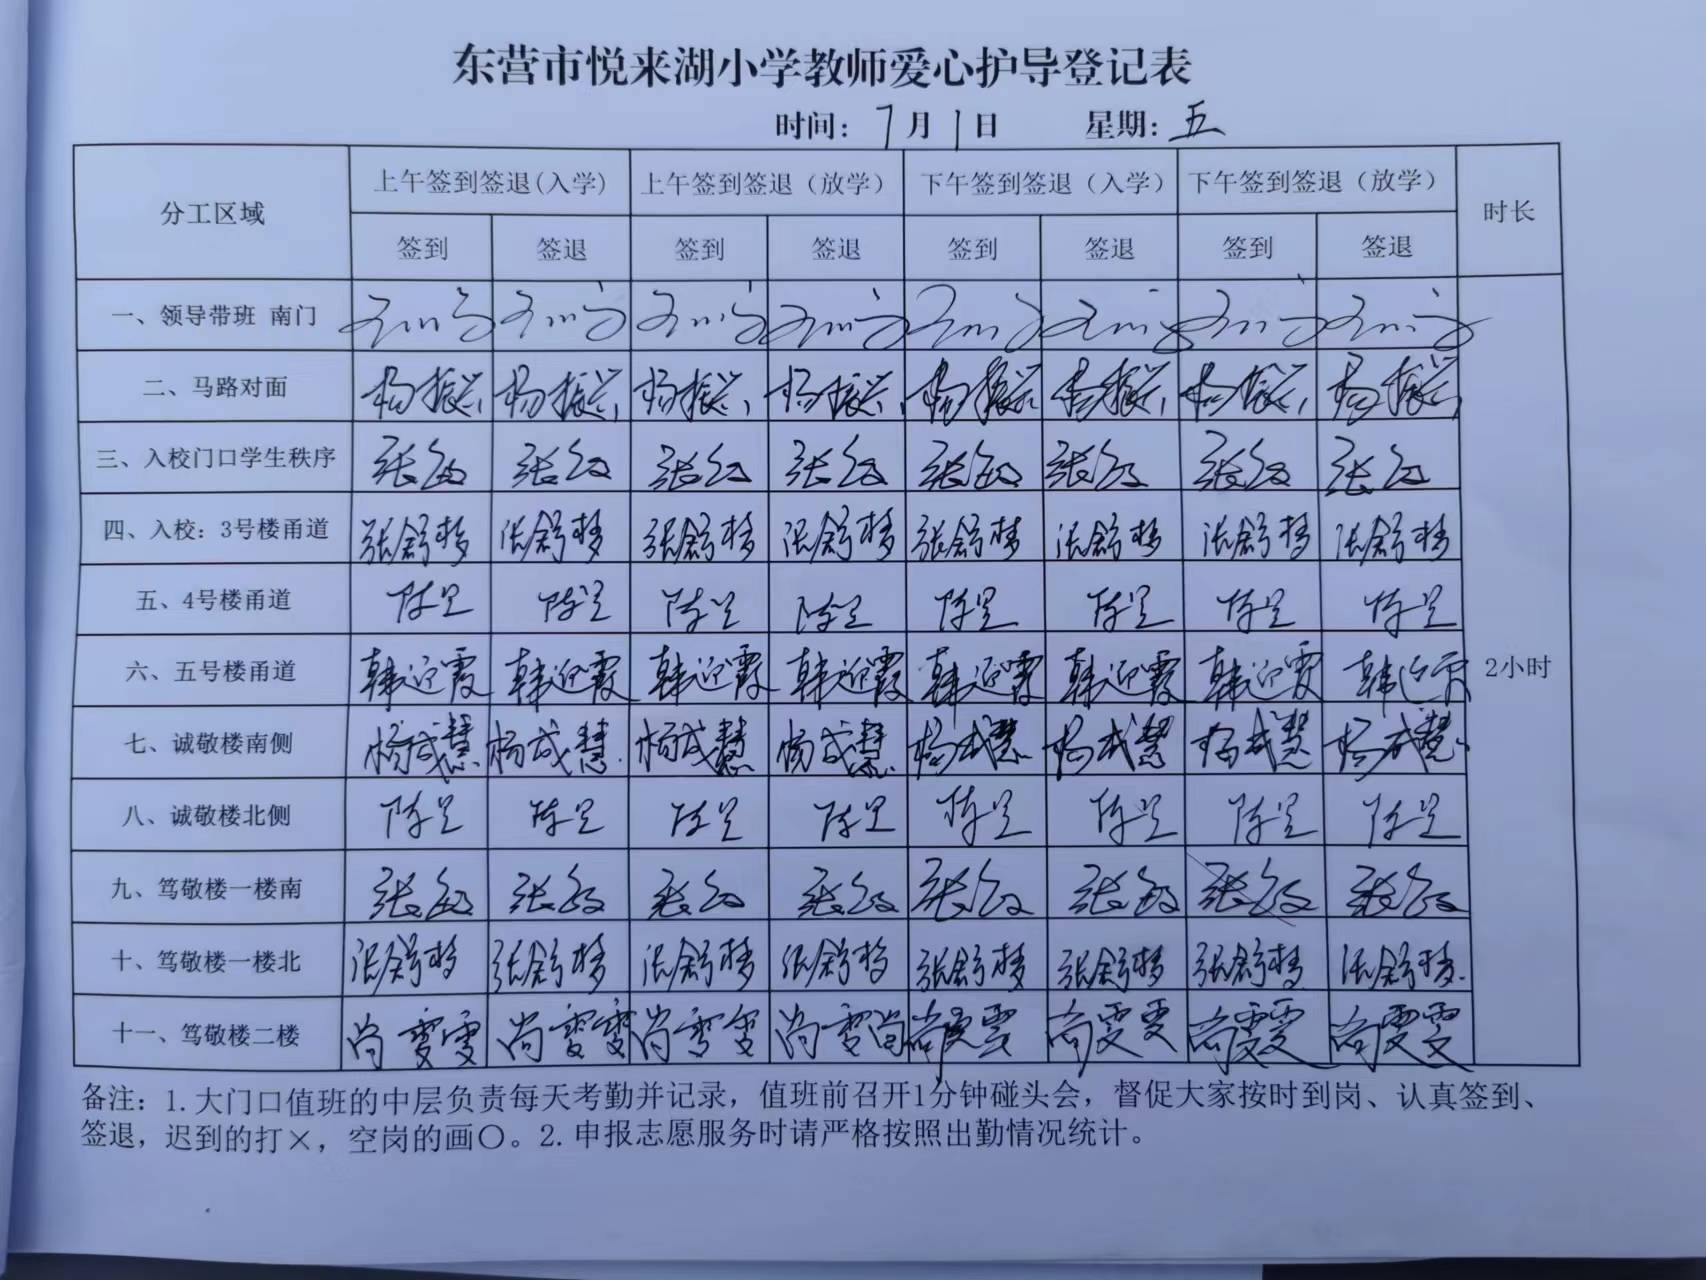 东营市悦来湖小学教师爱心护导登记表
时间：7月1日 星期：五
分工区域 上午签到签退(入学) 上午签到签退（放学） 下午签到签退（入学） 下午签到签退（放学） 时长
签到 签退 签到 签退 签到 签退 签到 签退
一、领导带班 南门
二、马路对面 杨振兴 杨振兴 杨振兴 杨振兴 杨振兴 杨振兴 杨振兴 杨振兴
三、入校门口学生秩序 张 张 张 张 张 张 张 张
四、入校：3号楼甬道 张舒梦 张舒梦 张舒梦 张舒梦 张舒梦 张舒梦 张舒梦 张舒梦
五、4号楼甬道 陈昱 陈昱 陈昱 陈昱 陈昱 陈昱 陈昱 陈昱
六、五号楼甬道 韩迎霞 韩迎霞 韩迎霞 韩迎霞 韩迎霞 韩迎霞 韩迎霞 韩迎霞 2小时
七、诚敬楼南侧 杨成慧 杨成慧 杨成慧 杨成慧 杨成慧 杨成慧 杨成慧 杨成慧
八、诚敬楼北侧 陈昱 陈昱 陈昱 陈昱 陈昱 陈昱 陈昱 陈昱
九、笃敬楼一楼南 张 张 张 张 张 张 张 张
十、笃敬楼一楼北 张舒梦 张舒梦 张舒梦 张舒梦 张舒梦 张舒梦 张舒梦 张舒梦
十一、笃敬楼二楼 尚雯雯 尚雯雯 尚雯雯 尚雯 尚雯雯 尚雯雯 尚雯雯 尚雯雯
备注：1.大门口值班的中层负责每天考勤并记录，值班前召开1分钟碰头会，督促大家按时到岗、认真签到、
签退，迟到的打×，空岗的画〇。2.申报志愿服务时请严格按照出勤情况统计。